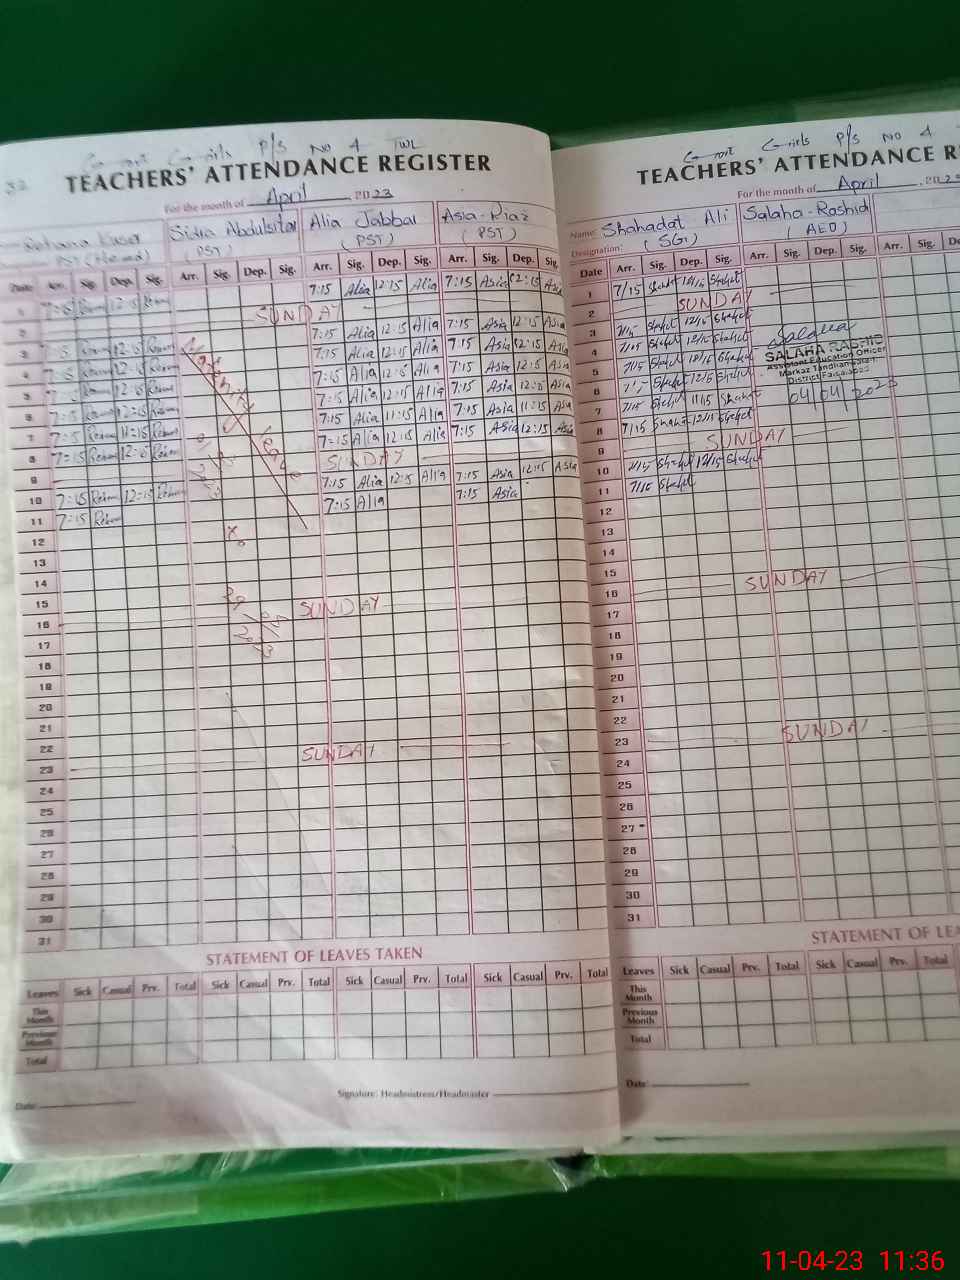 32
Govt Girls P/S No 4 TWL
TEACHERS' ATTENDANCE REGISTER
For the month of April, 2023
Rehana Kusar Sidra Abdulsitar Alia Jabbar Asia Riaz
PST (Head) (PST) (PST) (PST)
Date Arr. Sig. Dep. Sig. Arr. Sig. Dep. Sig. Arr. Sig. Dep. Sig. Arr. Sig. Dep. Sig.
1 7:15 12:15 7:15 Alia 12:15 Alia 7:15 Asia 12:15 Asia
2 SUNDAY
3 12:15 7:15 Alia 12:15 Alia 7:15 Asia 12:15 Asia
4 12:15 7:15 Alia 12:15 Alia 7:15 Asia 12:15 Asia
5 12:15 7:15 Alia 12:15 Alia 7:15 Asia 12:15 Asia
6 12:15 7:15 Alia 12:15 Alia 7:15 Asia 12:15 Asia
7 7:15 11:15 7:15 Alia 11:15 Alia 7:15 Asia 11:15 Asia
8 7:15 12:15 7:15 Alia 12:15 Alia 7:15 Asia 12:15 Asia
9 SUNDAY
10 7:15 12:15 7:15 Alia 12:15 Alia 7:15 Asia 12:15 Asia
11 7:15 7:15 Alia 7:15 Asia
Maternity Leave
12
13
14
15
16 SUNDAY
17
18
19
20
21
22
23 SUNDAY
24
25
26
27
28
29
30
31
STATEMENT OF LEAVES TAKEN
Leaves Sick Casual Prv. Total Sick Casual Prv. Total Sick Casual Prv. Total Sick Casual Prv. Total
This Month
Previous Month
Total
Signature: Headmistress/Headmaster
Date:
Govt Girls P/S No 4
TEACHERS' ATTENDANCE R
For the month of April, 20
Name: Shahadat Ali Salaha-Rashid
Designation: (SG) (AEO)
Date Arr. Sig. Dep. Sig. Arr. Sig. Dep. Sig. Arr. Sig. De
1 7/15 12/15
2 SUNDAY
3 7/15 12/15
4 7/15 12/15
5 7/15 12/15
6 12/15
7 7/15 11/15
8 7/15 12/15
Salaha
SALAHA RASHID
Assistant Education Officer
Markaz Tandlianwala
District Faisalabad
04/04/2023
9 SUNDAY
10 7/15 12/15
11 7/15
12
13
14
15
16 SUNDAY
17
18
19
20
21
22
23 SUNDAY
24
25
26
27
28
29
30
31
STATEMENT OF LEA
Leaves Sick Casual Prv. Total Sick Casual Prv. Total
This Month
Previous Month
Total
Date:
11-04-23 11:36